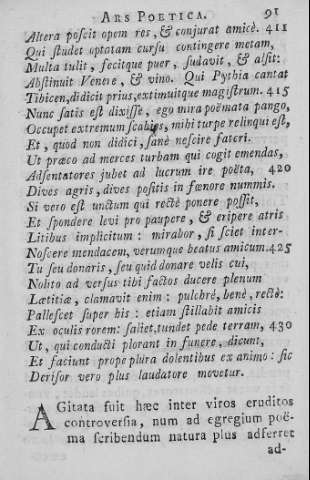 ARS POETICA. 91
Altera poscit opem res, & conjurat amicè. 411
Qui studet optatam cursu contingere metam,
Multa tulit, fecitque puer, sudavit, & alsit:
Abstinuit Venere, & vino. Qui Pythia cantat
Tibicen, didicit prius, extimuitque magistrum. 415
Nunc satis est dixisse, ego mira poëmata pango,
Occupet extremum scabies, mihi turpe relinqui est,
Et, quod non didici, sanè nescire fateri.
Ut præco ad merces turbam qui cogit emendas,
Adsentatores jubet ad lucrum ire poëta, 420
Dives agris, dives positis in fœnore nummis.
Si vero est unctum qui rectè ponere possit,
Et spondere levi pro paupere, & eripere atris
Litibus implicitum: mirabor, si sciet inter-
Noscere mendacem, verumque beatus amicum. 425
Tu seu donaris, seu quid donare velis cui,
Nolito ad versus tibi factos ducere plenum
Lætitiæ, clamavit enim: pulchrè, benè, rectè:
Pallescet super his: etiam stillabit amicis
Ex oculis rorem: saliet, tundet pede terram, 430
Ut, qui conducti plorant in funere, dicunt,
Et faciunt prope plura dolentibus ex animo: sic
Derisor vero plus laudatore movetur.
AGitata fuit hæc inter viros eruditos
controversia, num ad egregium poë-
ma scribendum natura plus adferret
ad-